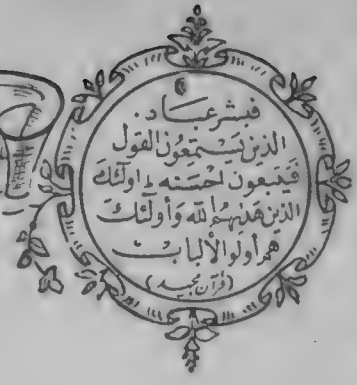 فبشر عباد .
الذين يستمعون القول
فيتبعون احسنه ط اولئك
الذين هدىهم الله وأولئك
هم أولو الألباب
(قرآن مجيد)